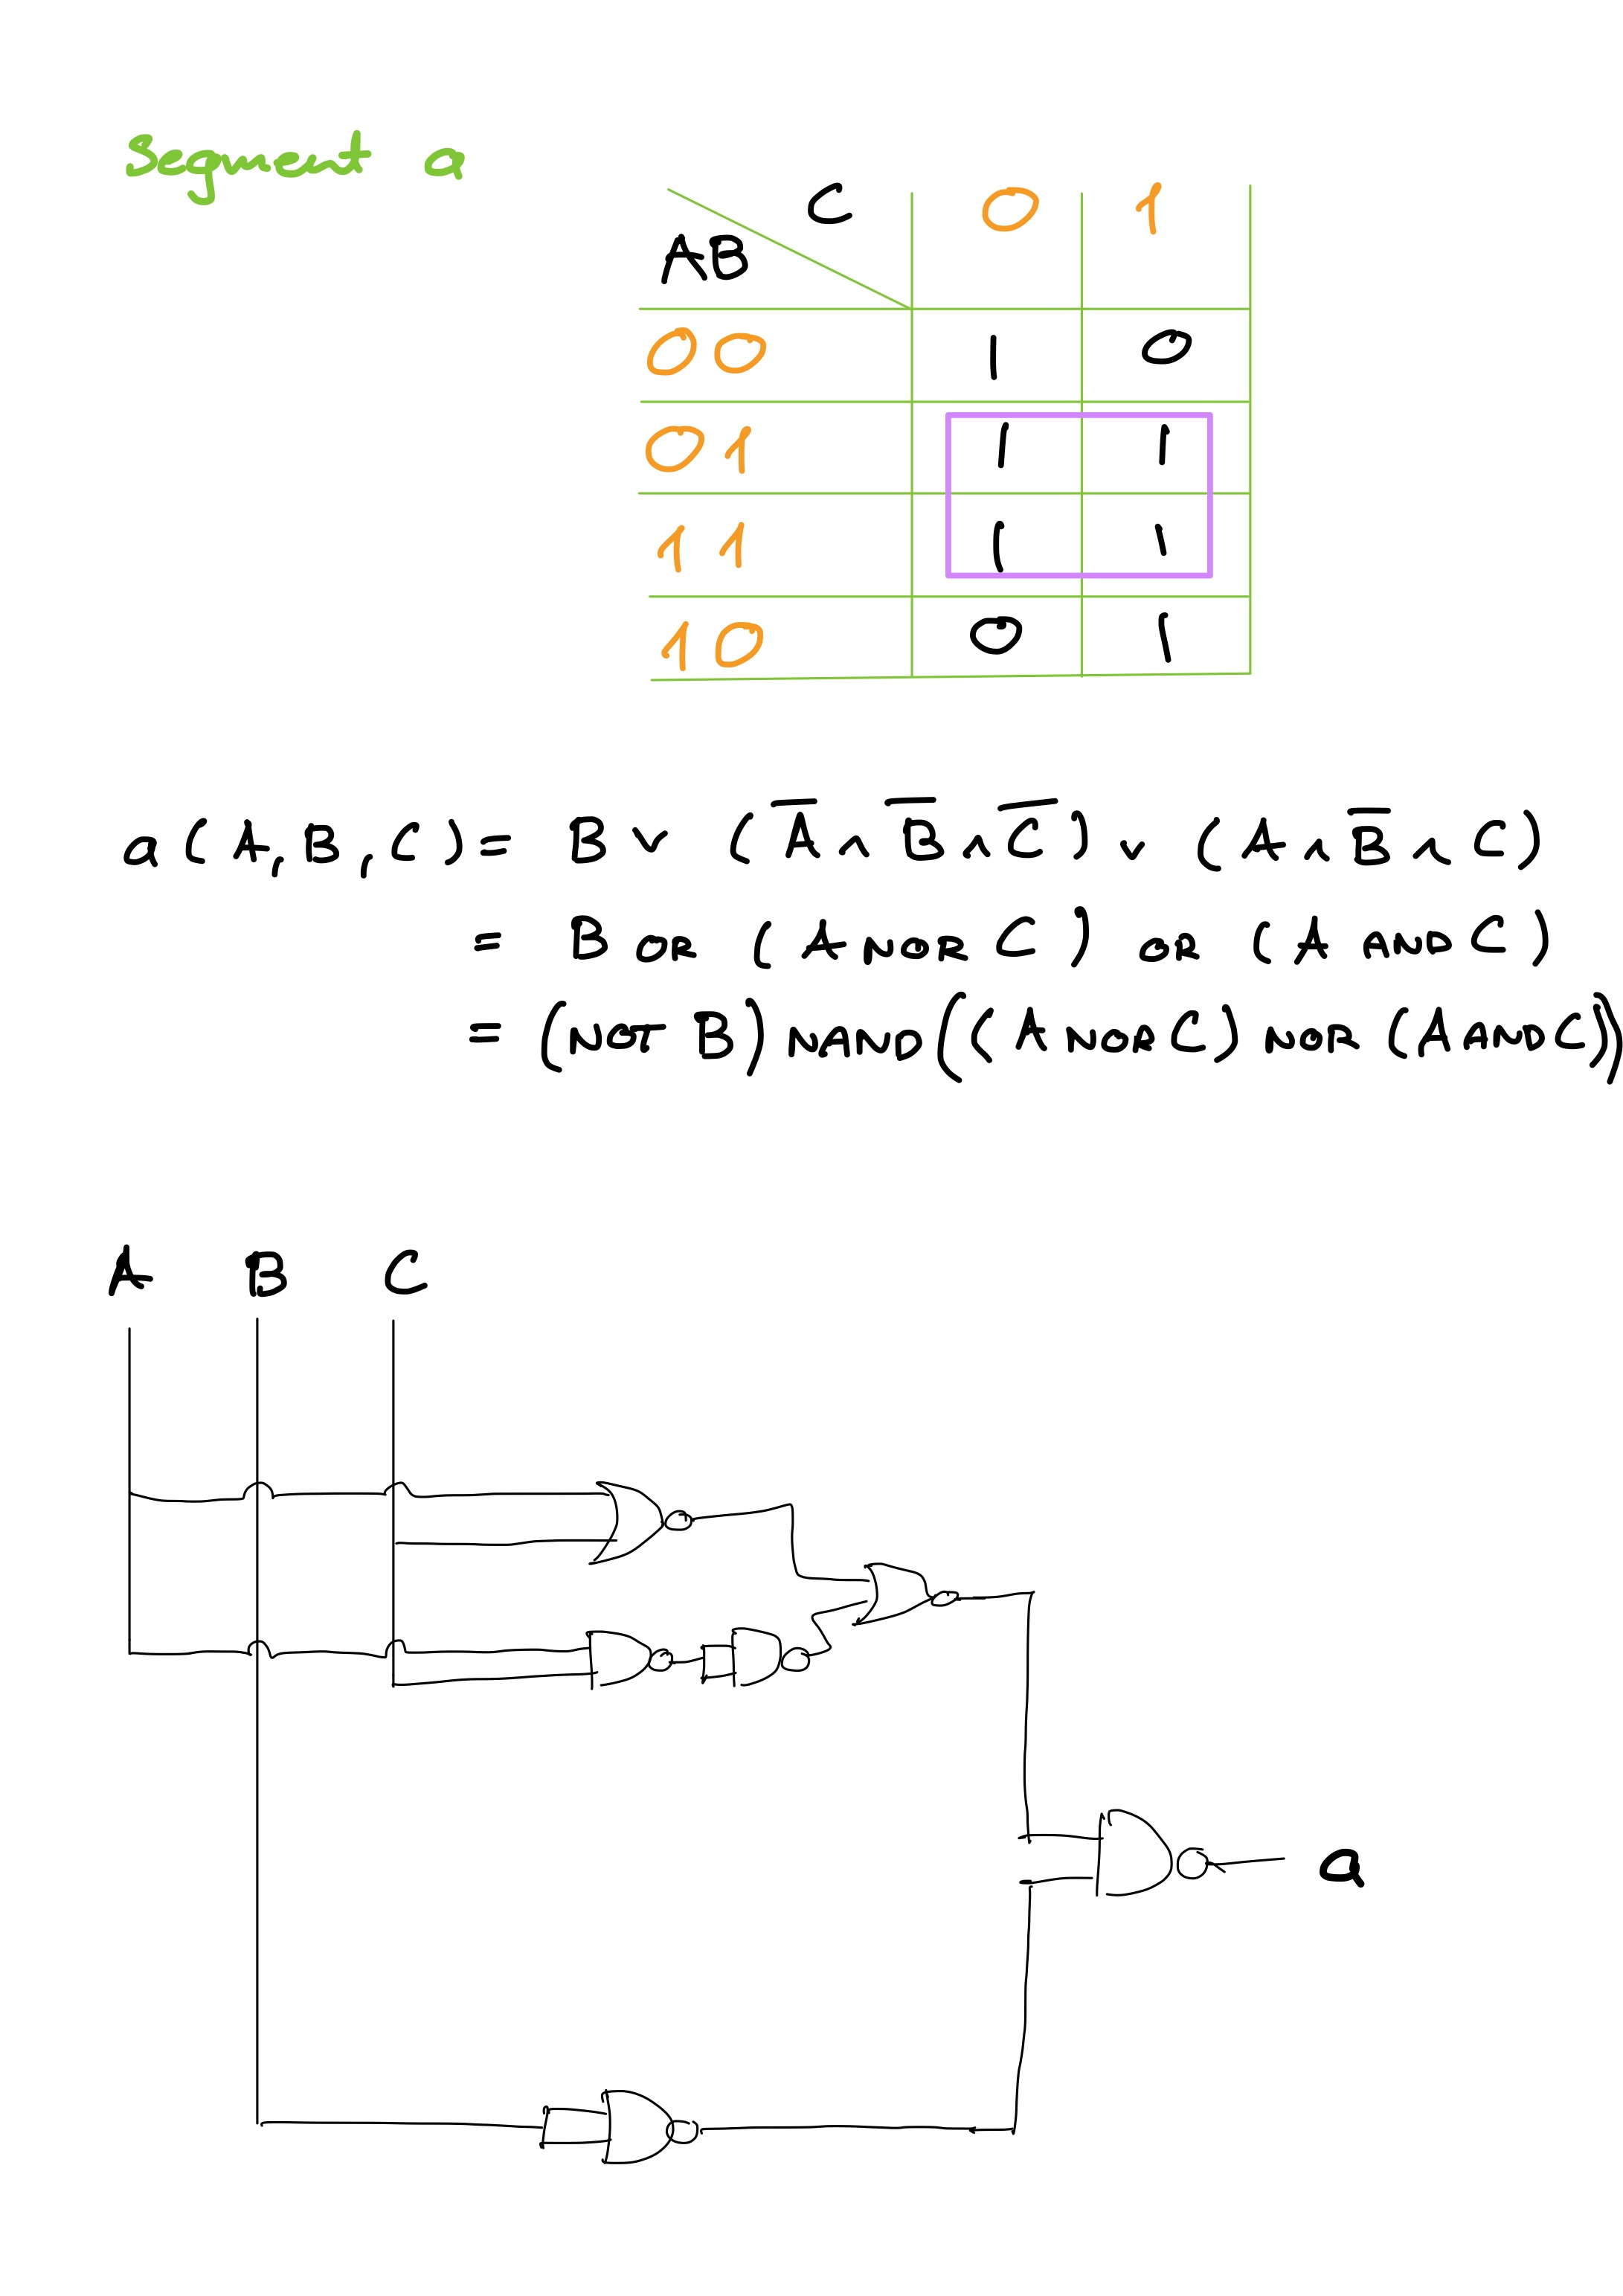 Segment a
C 0 1
AB
00 1 0
01 1 1
11 1 1
10 0 1
a(A,B,C) = B ∨ (A̅ ∧ B̅ ∧ C̅) ∨ (A ∧ B̅ ∧ C)
= B OR (A NOR C) OR (A AND C)
= (NOT B) NAND ((A NOR C) NOR (A AND C))
A B C
a